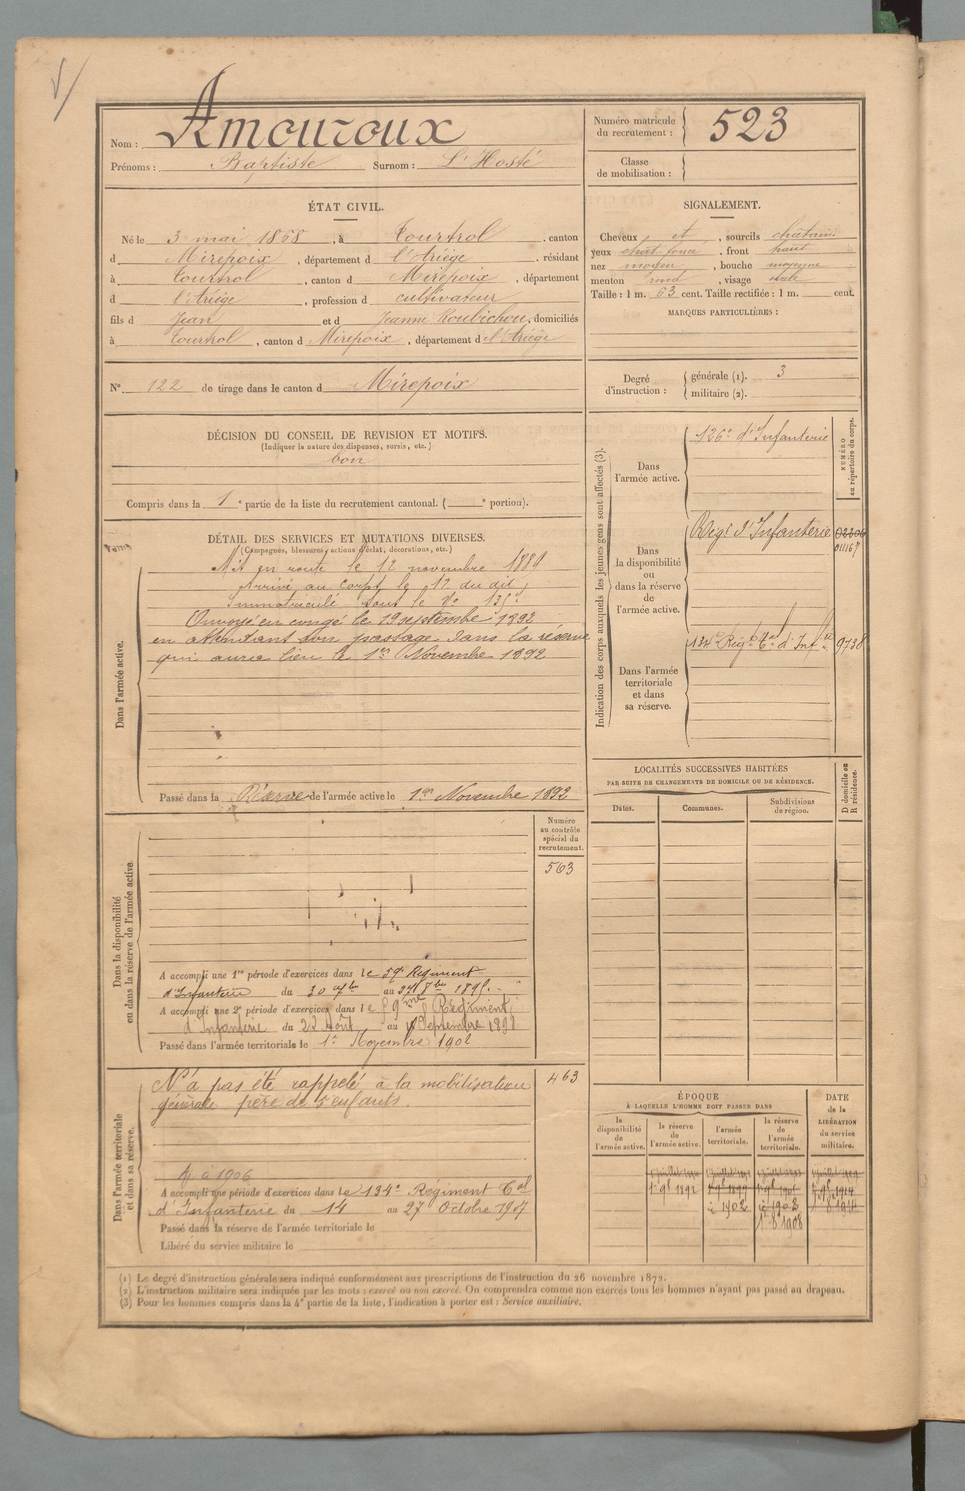 Nom : Amouroux
Prénoms : Baptiste Surnom : L'Hosté
Numéro matricule du recrutement : 523
Classe de mobilisation :
ÉTAT CIVIL.
Né le 3 mai 1868, à Tourtrol, canton
d Mirepoix, département d l'Ariège, résidant
à Tourtrol, canton d Mirepoix, département
d l'Ariège, profession d cultivateur
fils d Jean et d Jeanne Roubichou, domiciliés
à Tourtrol, canton d Mirepoix, département d l'Ariège
N° 122 de tirage dans le canton d Mirepoix
SIGNALEMENT.
Cheveux et, sourcils châtains
yeux chât. foncé, front haut
nez moyen, bouche moyenne
menton rond, visage ovale
Taille : 1 m. 63 cent. Taille rectifiée : 1 m. cent.
MARQUES PARTICULIÈRES :
Degré d'instruction : générale (1). 3
militaire (2).
DÉCISION DU CONSEIL DE REVISION ET MOTIFS.
(Indiquer la nature des dispenses, sursis, etc.)
bon
Compris dans la 1e partie de la liste du recrutement cantonal. ( e portion).
DÉTAIL DES SERVICES ET MUTATIONS DIVERSES.
(Campagnes, blessures, actions d'éclat, décorations, etc.)
Dans l'armée active.
Mis en route le 12 novembre 1889
Arrivé au corps le 12 du dit,
Immatriculé sous le No
Envoyé en congé le 19 septembre 1892
en attendant son passage dans la réserve
qui aura lieu le 1er Novembre 1892
Passé dans la Réserve de l'armée active le 1er Novembre 1892
Indication des corps auxquels les jeunes gens sont affectés (3).
NUMÉRO au répertoire du corps.
Dans l'armée active.
126e d'Infanterie
Dans la disponibilité ou dans la réserve de l'armée active.
Régt d'Infanterie
011167
Dans l'armée territoriale et dans sa réserve.
134e Régt Cal d'Infie
9738
LOCALITÉS SUCCESSIVES HABITÉES
PAR SUITE DE CHANGEMENTS DE DOMICILE OU DE RÉSIDENCE.
Dates. Communes. Subdivisions de région. D domicile ou R résidence.
Dans la disponibilité ou dans la réserve de l'armée active.
Numéro au contrôle spécial du recrutement.
563
A accompli une 1re période d'exercices dans le 59e Régiment
d'Infanterie du 30 au 27 8bre 1895.
A accompli une 2e période d'exercices dans le 59me Régiment
d'Infanterie du 22 Août au Septembre 1898
Passé dans l'armée territoriale le 1er Novembre 1902
Dans l'armée territoriale et dans sa réserve.
N'a pas été rappelé à la mobilisation
générale père de 5 enfants.
463
à 1906
A accompli une période d'exercices dans le 134e Régiment Cal
d'Infanterie du 14 au 27 Octobre 1907
Passé dans la réserve de l'armée territoriale le
Libéré du service militaire le
ÉPOQUE
À LAQUELLE L'HOMME DOIT PASSER DANS
la disponibilité de l'armée active. la réserve de l'armée active. l'armée territoriale. la réserve de l'armée territoriale.
DATE de la LIBÉRATION du service militaire.
1er 9b 1892
1902
1908
(1) Le degré d'instruction générale sera indiqué conformément aux prescriptions de l'instruction du 26 novembre 1872.
(2) L'instruction militaire sera indiquée par les mots : exercé ou non exercé. On comprendra comme non exercés tous les hommes n'ayant pas passé au drapeau.
(3) Pour les hommes compris dans la 4e partie de la liste, l'indication à porter est : Service auxiliaire.